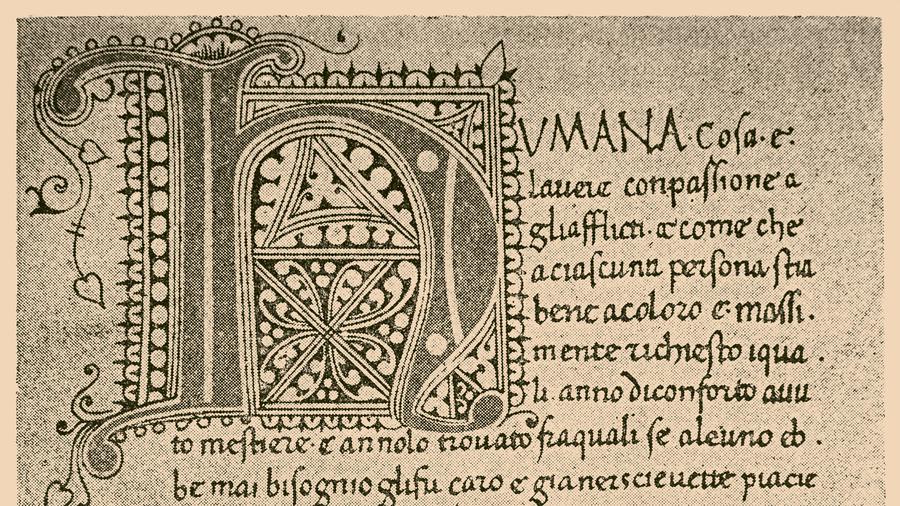 HVMANA·Cosa·e·
lauere conpassione a
gliafflicti·& come che
aciascuna persona stia
bene acoloro e·massi.
mente richiesto iqua.
li anno diconforto auu
to mestiere·e annolo trouato fraquali se alcuno eb.
be mai bisognio glifu caro e gianericieuette piacie